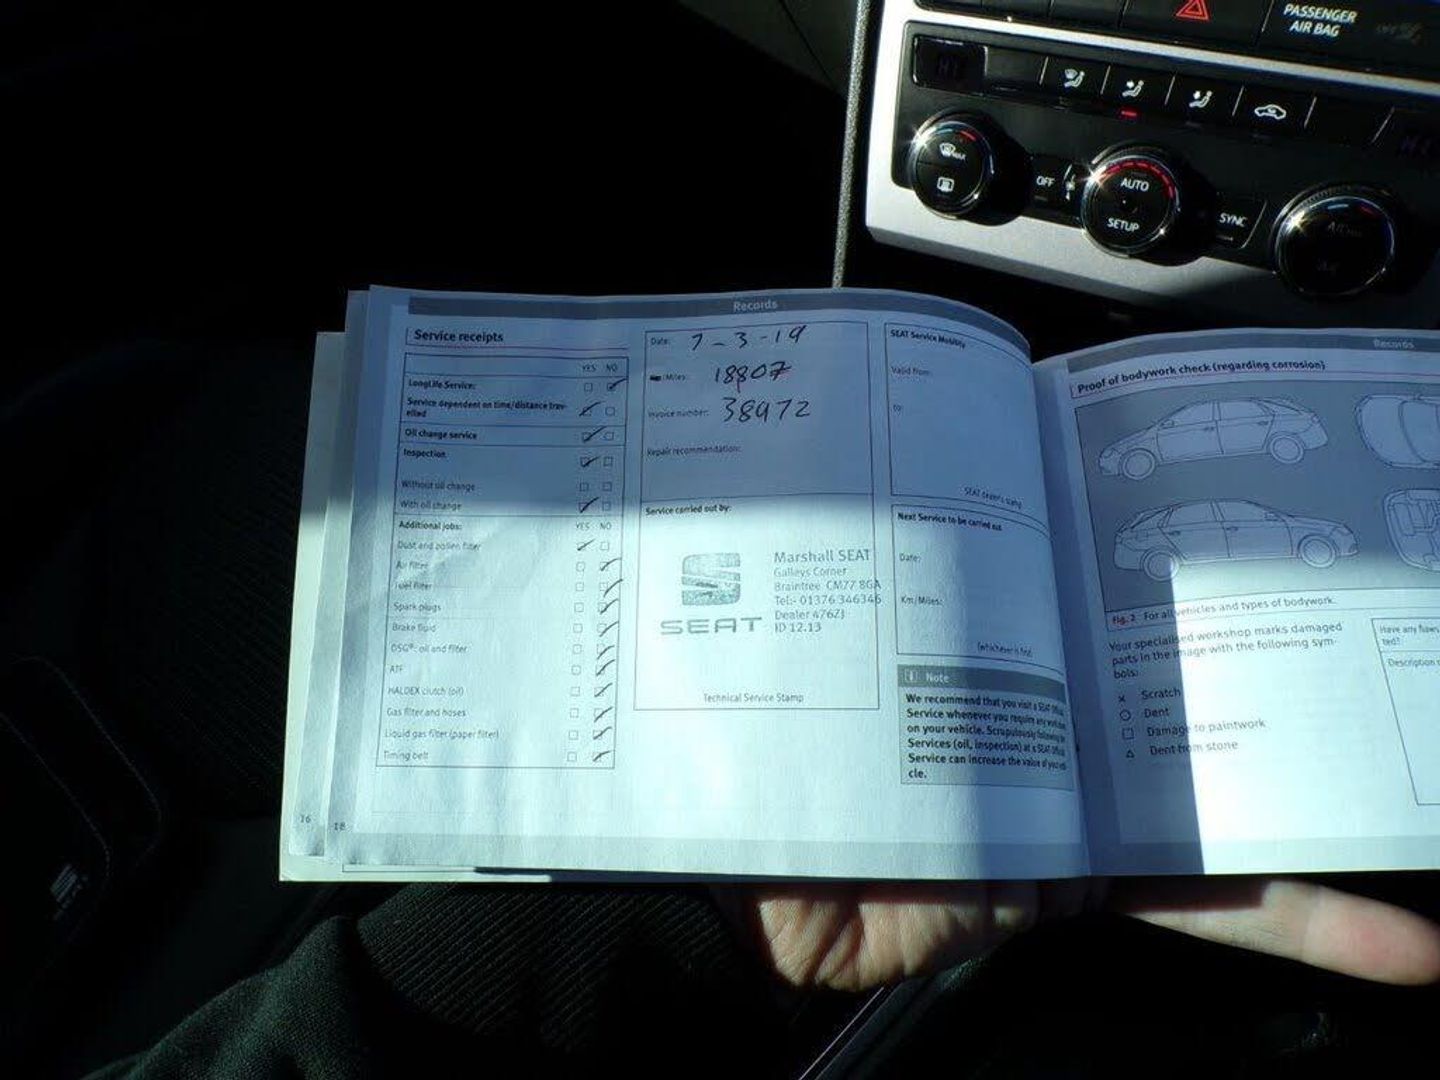 PASSENGER
AIR BAG
HI
MAX
OFF
AUTO
SETUP
SYNC
Records
Service receipts
YES NO
LongLife Service:
Service dependent on time/distance trav-
elled
Oil change service
Inspection
Without oil change
With oil change
Additional jobs: YES NO
Dust and pollen filter
Air filter
Fuel filter
Spark plugs
Brake fluid
DSG®: oil and filter
ATF
HALDEX clutch (oil)
Gas filter and hoses
Liquid gas filter (paper filter)
Timing belt
16
18
Date: 7-3-19
Miles: 18807
Invoice number: 38972
Repair recommendation:
Service carried out by:
SEAT
Marshall SEAT
Galleys Corner
Braintree CM77 8GA
Tel:- 01376 346346
Dealer 476ZJ
ID 12.13
Technical Service Stamp
SEAT Service Mobility
Valid from:
to:
SEAT dealer's stamp
Next Service to be carried out
Date:
Km/Miles:
(whichever is first)
i Note
We recommend that you visit a SEAT Official
Service whenever you require any
on your vehicle. Scrupulously following
Services (oil, inspection) at a SEAT Official
Service can increase the value of your vehi-
cle.
Records
Proof of bodywork check (regarding corrosion)
Fig. 2 For all vehicles and types of bodywork.
Your specialised workshop marks damaged
parts in the image with the following sym-
bols:
x Scratch
○ Dent
□ Damage to paintwork
△ Dent from stone
Have any flaws
ted?
Description